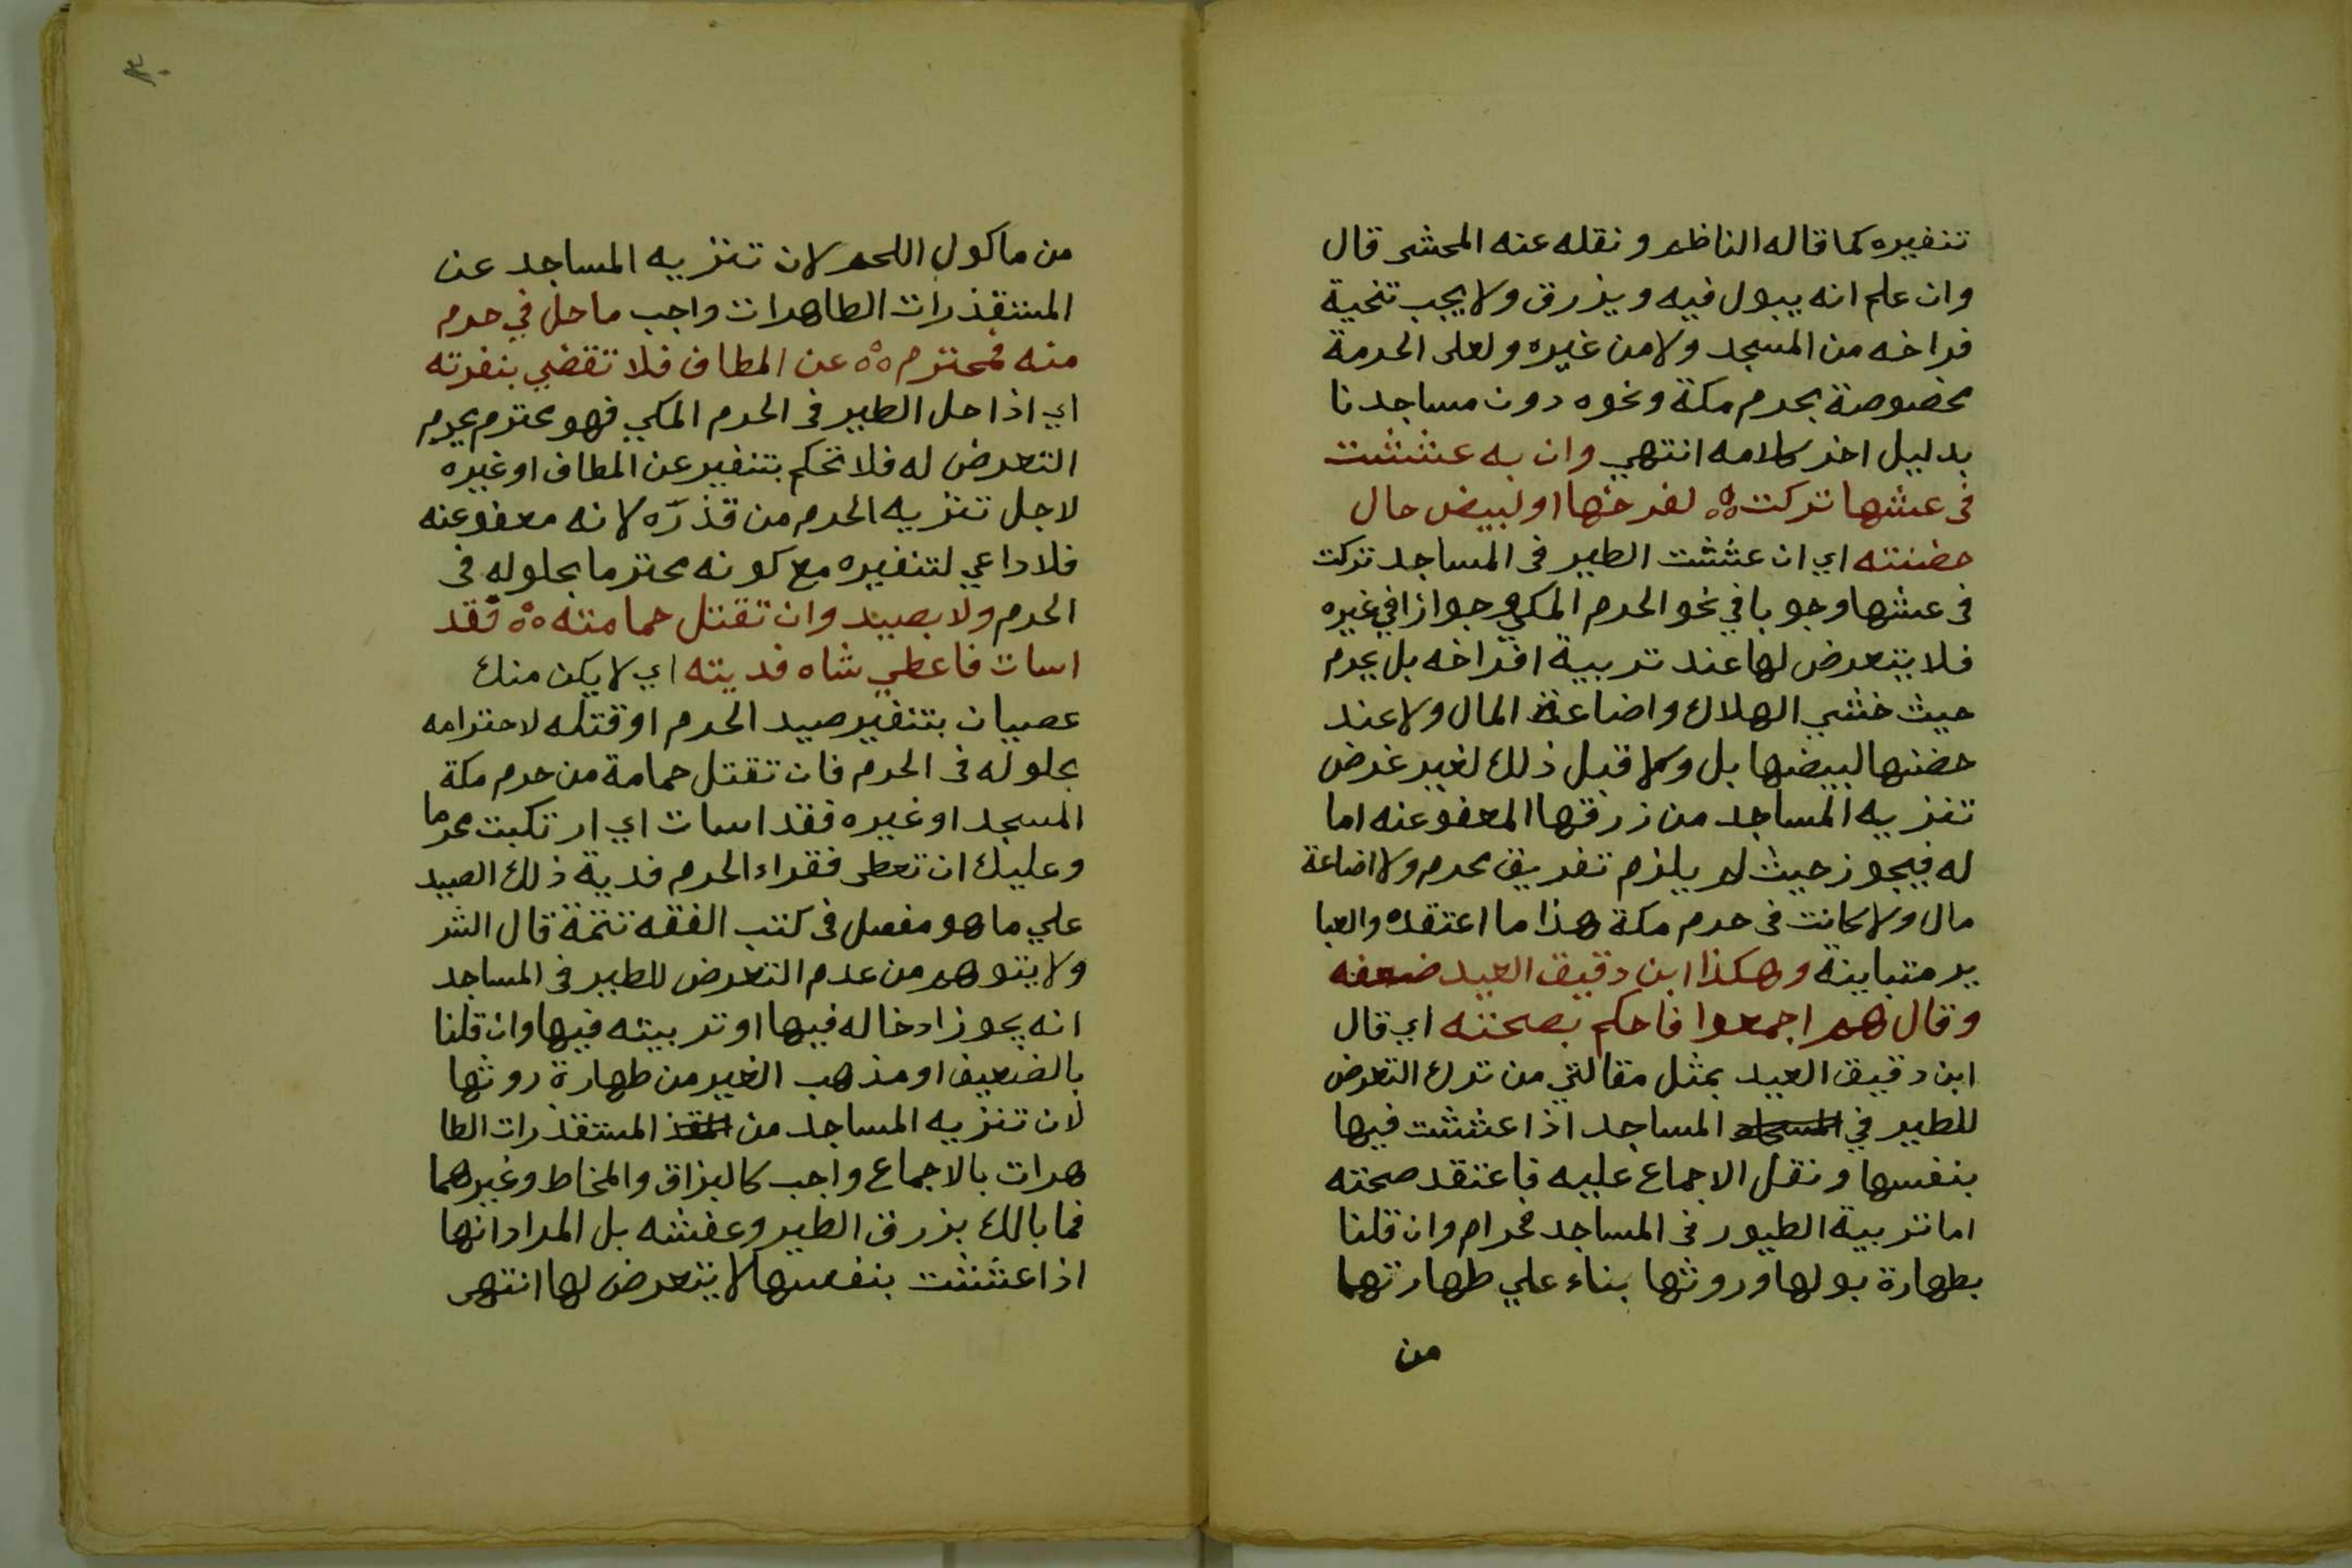 تنفيره كما قاله الناظم ونقله عنه المحشى قال
وان علم انه يبول فيه ويذرق ولا يجب تنحية
فراخه من المسجد ولا من غيره ولعل الحرمة
مخصوصة بحرم مكة ونحوه دون مساجدنا
بدليل اخر كلامه انتهي وان به عششت
فى عشها تركت لفرخها او لبيض حال
حضنته اي ان عششت الطير فى المساجد تركت
فى عشها وجوبا في نحو الحرم المكي وجوازا في غيره
فلا يتعرض لها عند تربية افراخه بل يحرم
حيث خشي الهلاك واضاعة المال ولا عند
حضنها لبيضها بل ولا قبل ذلك لغير غرض
تنزيه المساجد من زرقها المعفو عنه اما
له فيجوز حيث لم يلزم تفريق محرم ولا اضاعة
مال ولا كانت فى حرم مكة هذا ما اعتقده والعبا
ير متباينة وهكذا ابن دقيق العيد ضعفه
وقال هم اجمعوا فاحكم بصحته اي قال
ابن دقيق العيد بمثل مقالتي من ترك التعرض
للطير في المساجد اذا عششت فيها
بنفسها ونقل الاجماع عليه فاعتقد صحته
اما تربية الطيور فى المساجد فحرام وان قلنا
بطهارة بولها وروثها بناء علي طهارتهما
من
٣٠
من ماكول اللحم لان تنزيه المساجد عن
المستقذرات الطاهرات واجب ما حل في حرم
منه فمحترم ٥٥ عن المطاف فلا تقضي بنفرته
اي اذا حل الطير فى الحرم المكي فهو محترم يحرم
التعرض له فلا تحكم بتنفير عن المطاف او غيره
لاجل تنزيه الحرم من قذره لانه معفو عنه
فلا داعي لتنفيره مع كونه محترما بحلوله فى
الحرم ولا بصيد وان تقتل حمامته ٥٥ فقد
اسات فاعطي شاه فديته اي لا يكن منك
عصيان بتنفير صيد الحرم او قتله لاحترامه
بحلوله فى الحرم فان تقتل حمامة من حرم مكة
المسجد او غيره فقد اسات اي ارتكبت محرما
وعليك ان تعطى فقراء الحرم فدية ذلك الصيد
علي ما هو مفصل فى كتب الفقه تتمة قال الشر
ولا يتوهم من عدم التعرض للطير فى المساجد
انه يجوز ادخاله فيها او تربيته فيها وان قلنا
بالضعيف او مذهب الغير من طهارة روثها
لان تنزيه المساجد من المستقذرات الطا
هرات بالاجماع واجب كالبزاق والمخاط وغيرهما
فما بالك بزرق الطير وعفشه بل المراد انها
اذا عششت بنفسها لا يتعرض لها انتهى